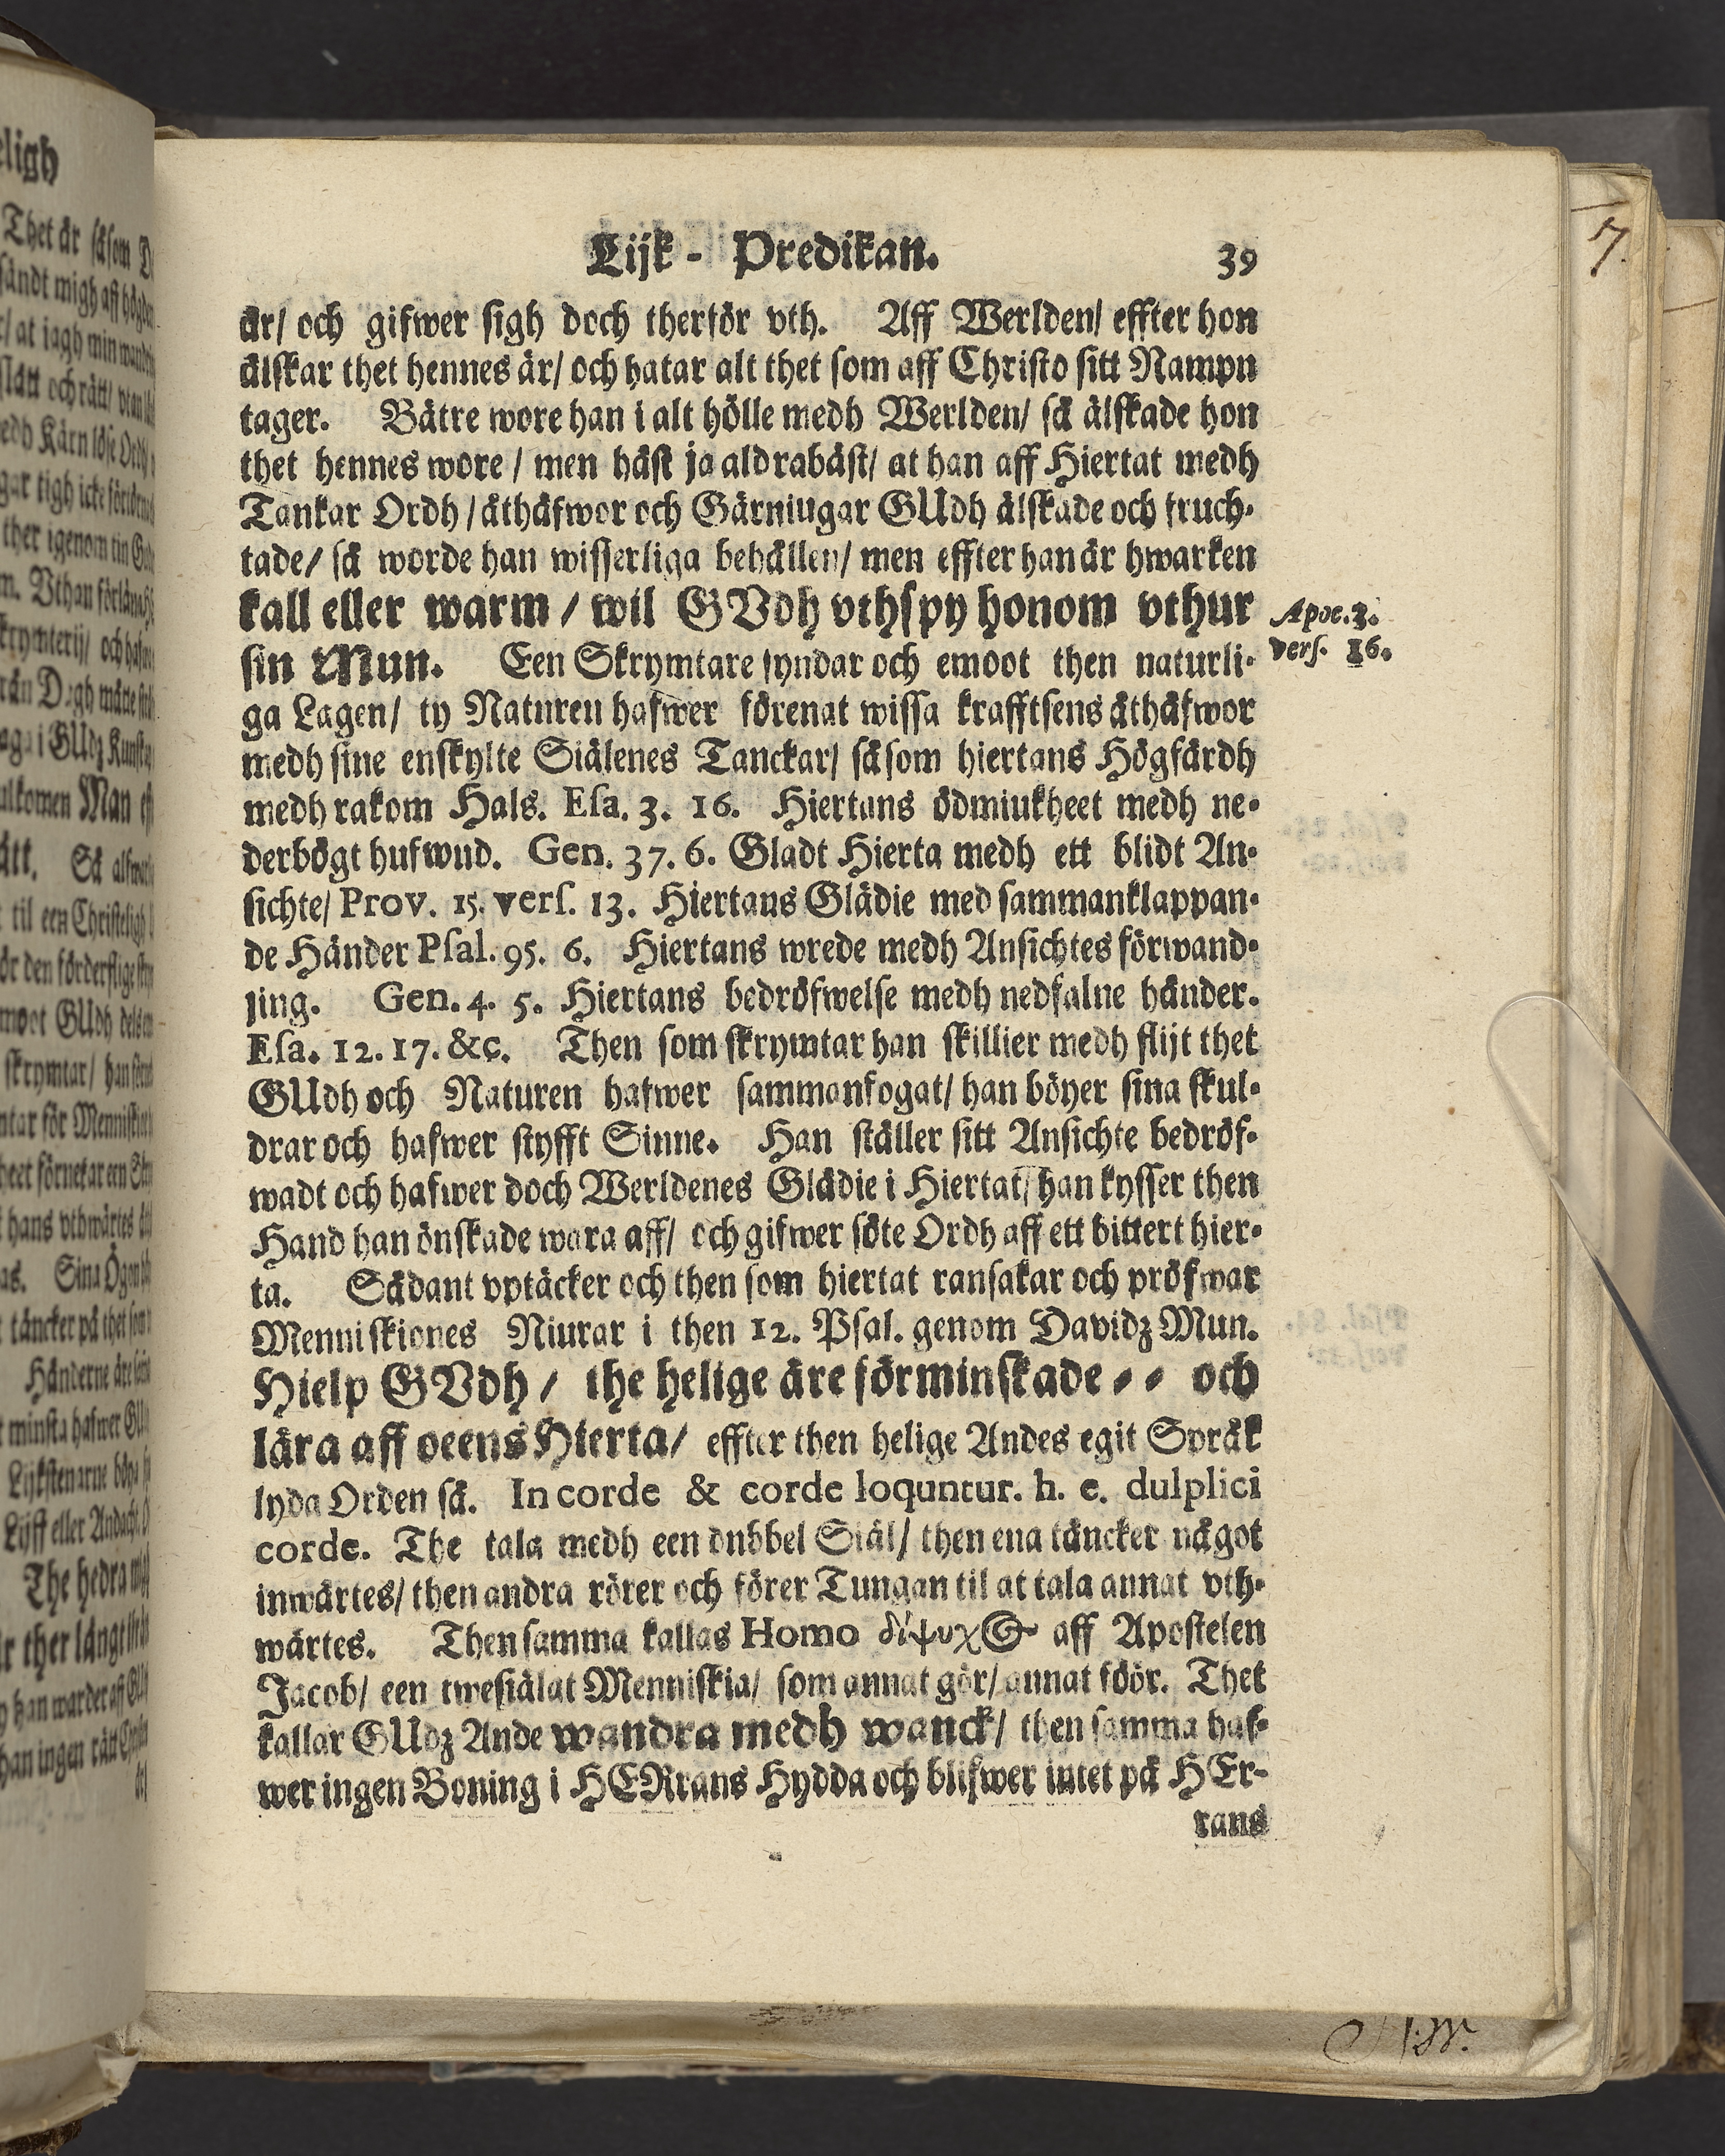 Lijk - Predikan. 39
är/ och gifwer sigh doch therför vth. Aff Werlden/ effter hon
älskar thet hennes är/ och hatar alt thet som aff Christo sitt Nampn
tager. Bätre wore han i alt hölle medh Werlden/ så älskade hon
thet hennes wore / men häst ja aldrabäst/ at han aff Hiertat medh
Tankar Ordh / åthäfwor och Gärniugar GUdh älskade och fruch-
tade/ så worde han wisserliga behållen/ men effter han är hwarken
kall eller warm / wil GVdh vthspy honom vthur
Apoc. 3.
sin Mun. Een Skrymtare syndar och emoot then naturli-
vers. 16.
ga Lagen/ ty Naturen hafwer förenat wissa krafftsens åthäfwor
medh sine enskylte Siälenes Tanckar/ såsom hiertans Högfärdh
medh rakom Hals. Esa. 3. 16. Hiertans ödmiukheet medh ne-
derbögt hufwud. Gen. 37. 6. Gladt Hierta medh ett blidt An-
sichte/ Prov. 15. vers. 13. Hiertans Glädie med sammanklappan-
de Händer Psal. 95. 6. Hiertans wrede medh Ansichtes förwand-
ling. Gen. 4. 5. Hiertans bedröfwelse medh nedfalne händer.
Esa. 12. 17. &c. Then som skrymtar han skillier medh flijt thet
GUdh och Naturen hafwer sammanfogat/ han böyer sina skul-
drar och hafwer styfft Sinne. Han ställer sitt Ansichte bedröf-
wadt och hafwer doch Werldenes Glädie i Hiertat/ han kysser then
Hand han önskade wara aff/ och gifwer söte Ordh aff ett bittert hier-
ta. Sådant vptäcker och then som hiertat ransakar och pröfwar
Menniskiones Niurar i then 12. Psal. genom Davidz Mun.
Hielp GVdh / the helige äre förminskade - - och
lära aff oeens Hierta/ effter then helige Andes egit Språk
lyda Orden så. In corde & corde loquntur. h. e. dulplici
corde. The tala medh een dubbel Siäl/ then ena täncker något
inwärtes/ then andra rörer och förer Tungan til at tala annat vth-
wärtes. Then samma kallas Homo δίψυχος aff Apostelen
Jacob/ een twesiälat Menniskia/ som annat gör/ annat föör. Thet
kallar GUdz Ande wandra medh wanck/ then samma haf-
wer ingen Boning i HERrans Hydda och blifwer intet på HEr-
rans
7.